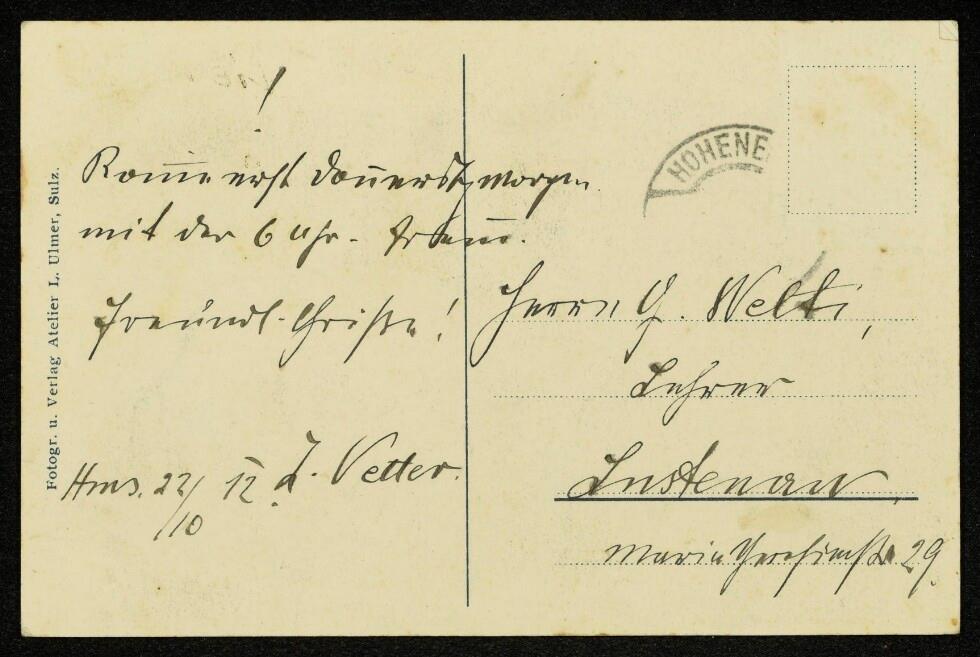 Kom̅e erst Don̅erstg Morgen
mit der 6 Uhr-Tram.
Freundl. Grüße!
Hms. 22/10 12 J. Vetter.
Fotogr. u. Verlag Atelier L. Ulmer, Sulz.
HOHENE
Herrn G. Welti,
Lehrer
Lustenau,
Mariatheresienstr 29.